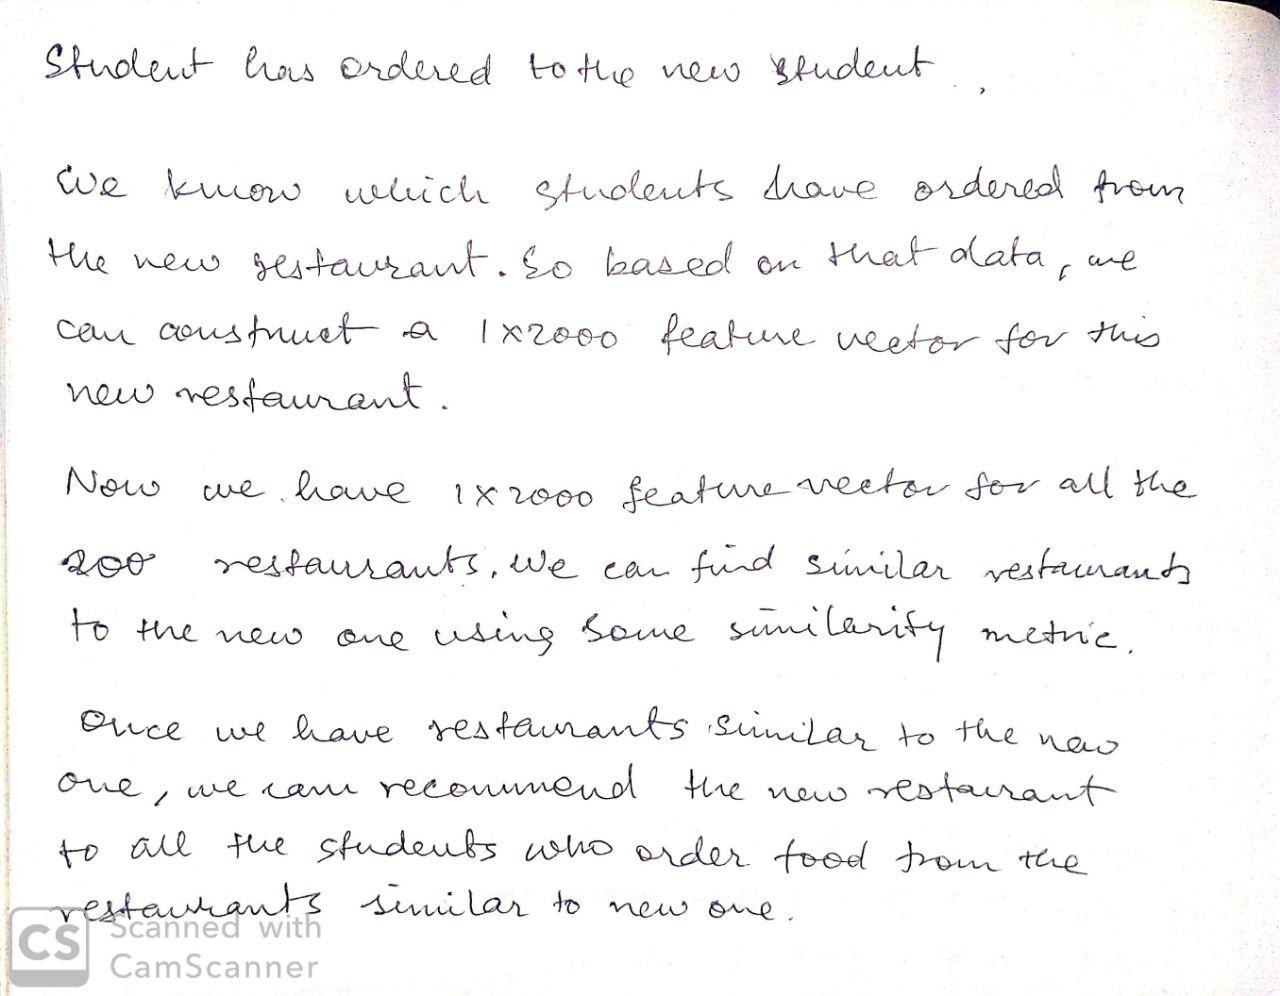 Student has ordered to the new student.
We know which students have ordered from
the new restaurant. So based on that data, we
can construct a 1x2000 feature vector for this
new restaurant.
Now we have 1x2000 feature vector for all the
200 restaurants. We can find similar restaurants
to the new one using some similarity metric.
Once we have restaurants similar to the new
one, we can recommend the new restaurant
to all the students who order food from the
restaurants similar to new one.
CS Scanned with
CamScanner